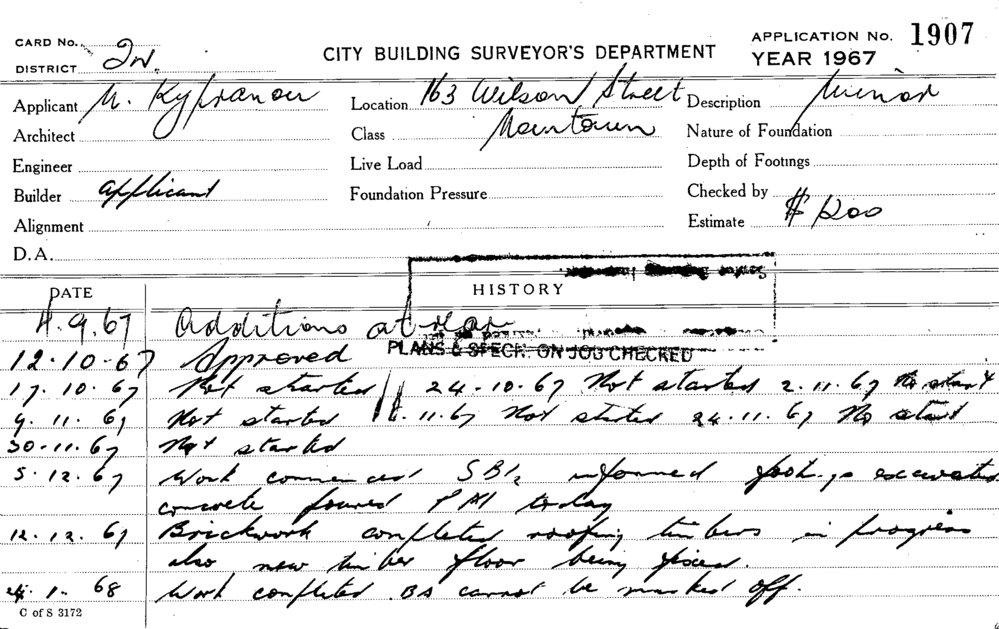 CARD No. 2W. CITY BUILDING SURVEYOR'S DEPARTMENT APPLICATION No. 1907
DISTRICT YEAR 1967
Applicant M. Kypranou Location 163 Wilson Street Description Minor
Architect Class Newtown Nature of Foundation
Engineer Live Load Depth of Footings
Builder applicant Foundation Pressure Checked by
Alignment Estimate $1200
D.A.
DATE HISTORY
4.9.67 Additions at rear
12.10.67 Approved PLANS & SPECN. ON JOB CHECKED
17.10.67 Not started 24.10.67 Not started 2.11.67 No start
9.11.67 Not started 11.67 Not started 24.11.67 No start
30.11.67 Not started
5.12.67 Work commenced informed footings excavated
concrete poured today
12.12.67 Brickwork completed roofing timbers in progress
also new timber floor being fixed.
24.1.68 Work completed. BA cannot be marked off.
C of S 3172